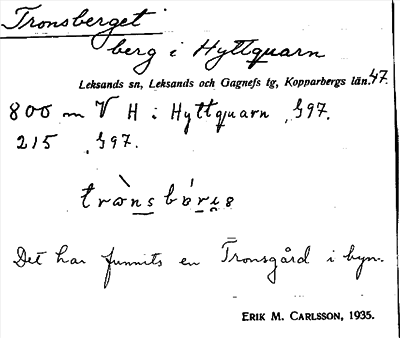 Tronsberget
berg i Hyttquarn
Leksands sn, Leksands och Gagnefs tg, Kopparbergs län. 47.
800 m V H i Hyttquarn , G97.
215 , G97.
Det har funnits en Tronsgård i byn.
ERIK M. CARLSSON, 1935.